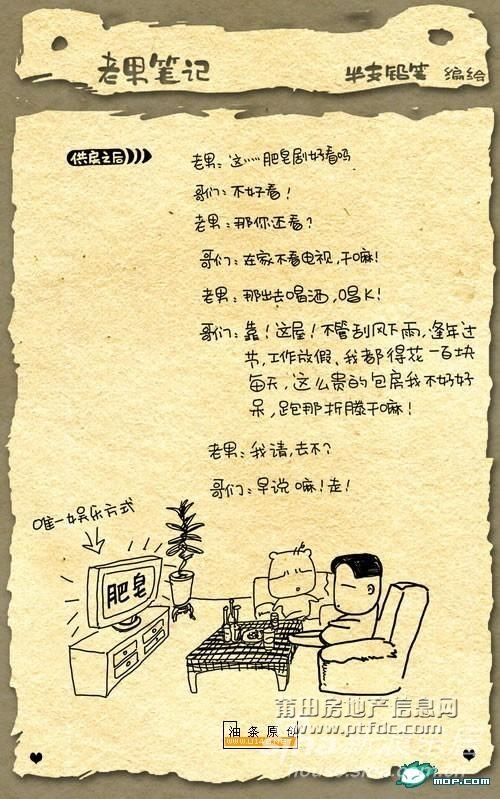 老男笔记
半支铅笔 编绘
供房之后
老男：这……肥皂剧好看吗
哥们：不好看！
老男：那你还看？
哥们：在家不看电视，干嘛！
老男：那出去喝酒，唱K！
哥们：靠！这屋！不管刮风下雨，逢年过
节，工作放假、我都得花一百块
每天，这么贵的包房我不好好
呆，跑那折腾干嘛！
老男：我请，去不？
哥们：早说嘛！走！
唯一娱乐方式
肥皂
油条原创
莆田房地产信息网
www.ptfdc.com
MOP.COM